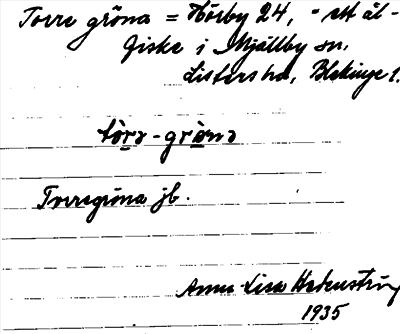 Torre gröna = Hörby 24, - ett ål-
fiske i Mjällby sn.
Listers hd, Blekinge l.
tòrə-grönə
Torregröna jb.
Anna-Lisa Hedenström
1935